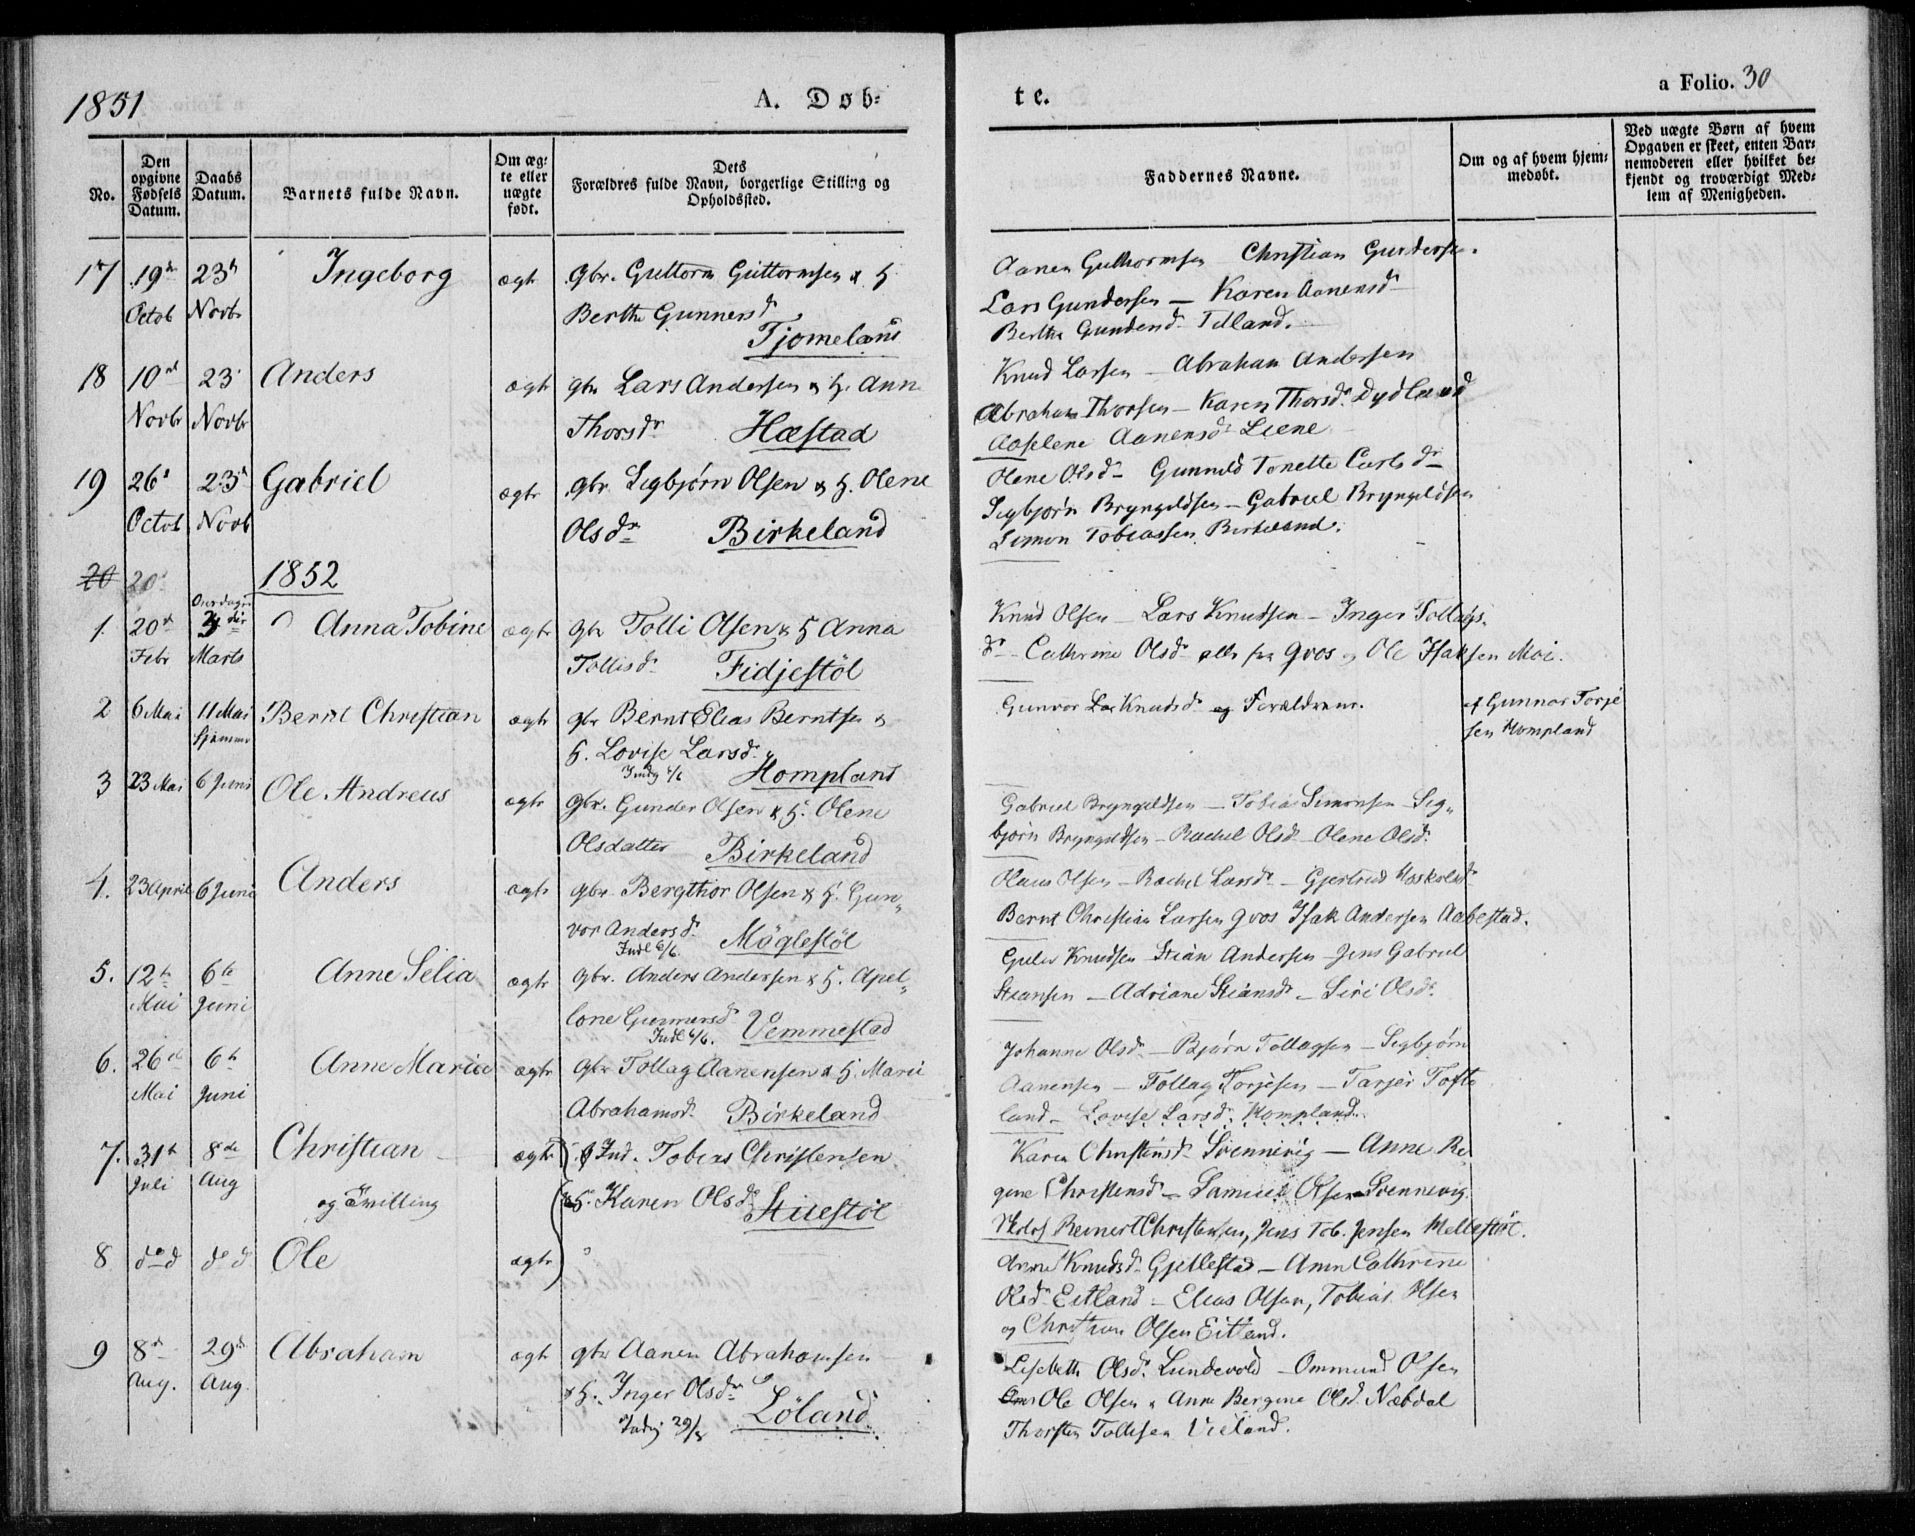 1851
A. Døb-
te.
a Folio. 30
No.
Den opgivne Fødsels Datum.
Daabs Datum.
Barnets fulde Navn.
Om ægte eller uægte født.
Dets Forældres fulde Navn, borgerlige Stilling og Opholdssted.
Faddernes Navne.
Om og af hvem hjemmedøbt.
Ved uægte Børn af hvem Opgaven er skeet, enten Barnemoderen eller hvilket bekjendt og troværdigt Medlem af Menigheden.
17 19de 23d Ingeborg ægte gbr. Guttorm Guttormsen & H.
Octob Novbr Berthe Gunnersd
Tjomeland
Aanen Guthormsen Christian Gundersen.
Lars Gundersen — Karen Aanensd
Berthe Gundersd Telland.
18 10d 23 Anders ægte gbr Lars Andersen & H. Anne
Novbr Novbr Thorsdr Hæstad
Knud Larsen — Abraham Andersen
Abraham Thorsen — Karen Thorsd. Dydland
Aaselene Aanensd Liene
19 26d 23d Gabriel ægte gbr Segbjørn Olsen & H. Olene
Octob Novb Olsdr Birkeland
Olene Olsd — Gunnild Tonette Carlsdr
Segbjørn Bryngeldsen — Gabriel Bryngeldsen
Simon Tobiassen Birkeland.
20 20 1852
1. 20d 3die Anna Tobine ægte gbr Tolli Olsen & H Anna
Febr Marts Tollisd. Fidjestöl
Knud Olsen — Lars Knudsen — Inger Tollags-
dr — Cathrine Olsd alle fra Qvos og Ole Isaksen Moi.
2 6 Mai 11 Mai Bernt Christian ægte gbr Bernt Elias Berntsen &
hjemme H. Lovise Larsd.
Hompland
Gunvor Knudsd og Forældrene.
af Gunnar Torje
sen Hompland
3 23 Mai 6 Juni Ole Andreas ægte gbr. Gunder Olsen & H. Olene
Olsdatter Birkeland
Gabriel Bryngeldsen — Tobias Simonsen — Seg-
bjørn Bryngeldsen — Rachel Olsd — Olene Olsd.
4. 23 April 6 Juni Anders ægte gbr. Bergthor Olsen & H. Gun-
vor Andersd.
Indl 6/6. Möglestöl
Olaus Olsen — Rachel Larsd — Gjertrud Hoskolsd
Bernt Christian Larsen Qvos Isak Andersen Aabestad.
5. 12te 6te Anne Selia ægte gbr. Anders Andersen & H. Apel-
Mai Juni lone Gunnersd
Indl 6/6. Vemmestad
Knudsen — Stian Andersen — Jens Gabriel
Steansen — Adriane Steansd — Siri Olsd.
6. 26d 6te Anne Marie ægte gbr Tollag Aanensen & H. Marie
Mai Juni Abrahamsd. Birkeland
Johanne Olsd. — Bjørn Tollagsen — Segbjørn
Aanensen — Tollag Torjesen — Tarjer Tofte
land — Lovise Larsd. Hompland.
7. 31te 8de Christian ægte Ind. Tobias Christensen
Juli Aug og Tvilling & H. Karen Olsd.
Karen Christensd. Svennevig — Anne Re
gine Christensd — Samuel Olsen Svennevig
Reinert Christensen, Jens Tob. Jensen Mellestöl.
8 do d do d Ole ægte
Anne Knudsd. Gjellestad — Anne Cathrine
Olsd Eitland — Elias Olsen, Tobias Olsen
og Christian Olsen Eitland.
9 8d 29d Abraham ægte gbr Aanen Abrahamsen
Aug. Aug. & H. Inger Olsdr
29/8 Löland
Lisebeth Olsd. Lundevold — Ommund Olsen
Ole Olsen & Anne Bergine Olsd. Næbdal
Thorsten Tollisen Vieland.